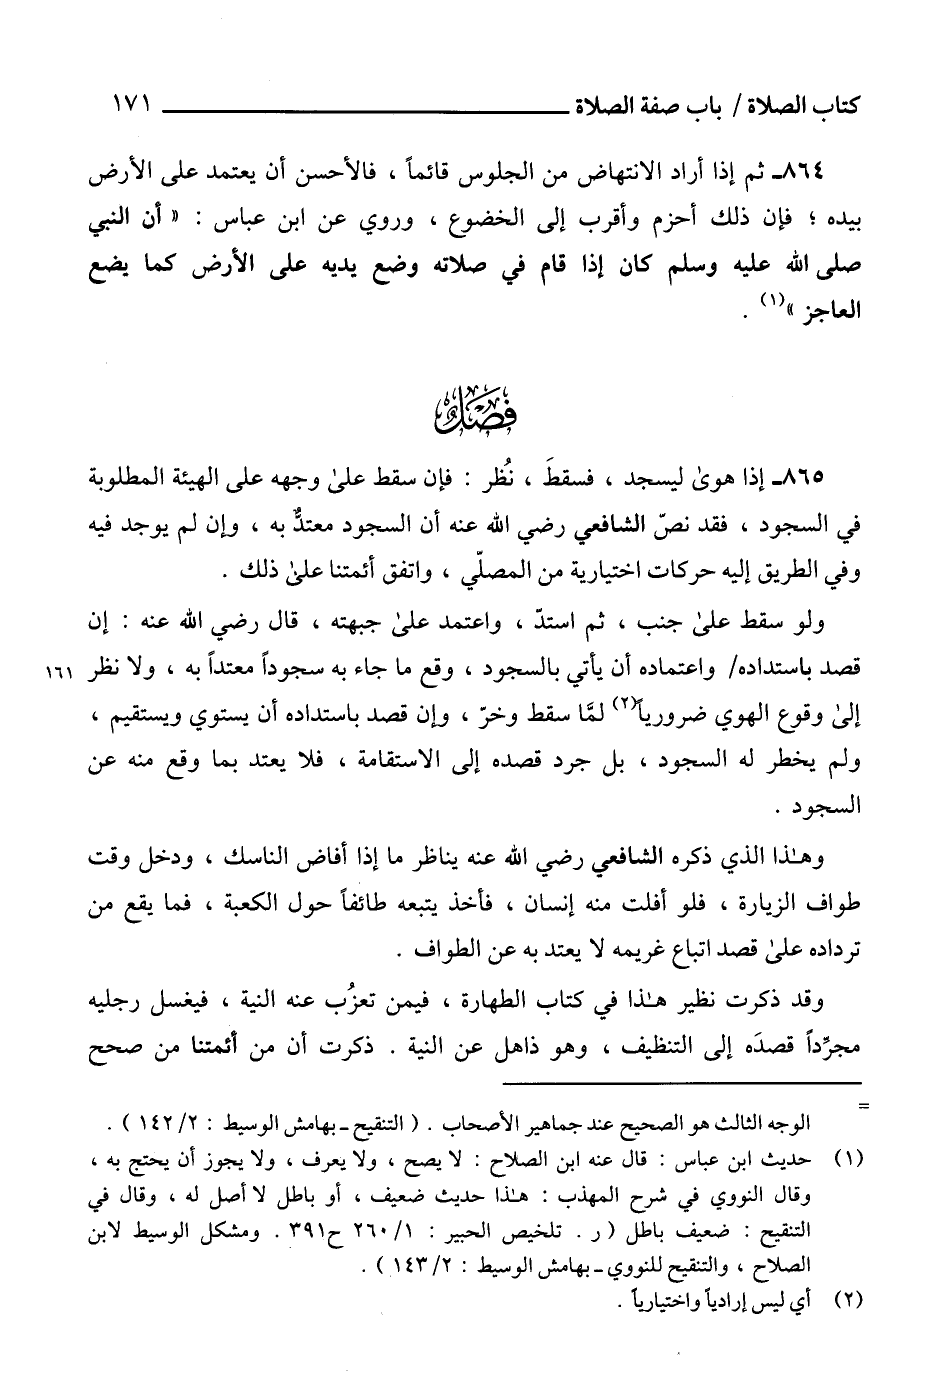 كتاب الصلاة / باب صفة الصلاة ١٧١
٨٦٤ـ ثم إذا أراد الانتهاض من الجلوس قائماً ، فالأحسن أن يعتمد على الأرض
بيده ؛ فإن ذلك أحزم وأقرب إلى الخضوع ، وروي عن ابن عباس : « أن النبي
صلى الله عليه وسلم كان إذا قام في صلاته وضع يديه على الأرض كما يضع
العاجز »(١) .
فصل
٨٦٥ـ إذا هوىٰ ليسجد ، فسقطَ ، نُظر : فإن سقط علىٰ وجهه على الهيئة المطلوبة
في السجود ، فقد نصّ الشافعي رضي الله عنه أن السجود معتدٌّ به ، وإن لم يوجد فيه
وفي الطريق إليه حركات اختيارية من المصلّي ، واتفق أئمتنا علىٰ ذلك .
ولو سقط علىٰ جنب ، ثم استدّ ، واعتمد علىٰ جبهته ، قال رضي الله عنه : إن
قصد باستداده/ واعتماده أن يأتي بالسجود ، وقع ما جاء به سجوداً معتداً به ، ولا نظر ١٦١
إلىٰ وقوع الهوي ضرورياً(٢) لمَّا سقط وخرّ ، وإن قصد باستداده أن يستوي ويستقيم ،
ولم يخطر له السجود ، بل جرد قصده إلى الاستقامة ، فلا يعتد بما وقع منه عن
السجود .
وهـٰذا الذي ذكره الشافعي رضي الله عنه يناظر ما إذا أفاض الناسك ، ودخل وقت
طواف الزيارة ، فلو أفلت منه إنسان ، فأخذ يتبعه طائفاً حول الكعبة ، فما يقع من
ترداده علىٰ قصد اتباع غريمه لا يعتد به عن الطواف .
وقد ذكرت نظير هـٰذا في كتاب الطهارة ، فيمن تعزُب عنه النية ، فيغسل رجليه
مجرِّداً قصدَه إلى التنظيف ، وهو ذاهل عن النية . ذكرت أن من أئمتنا من صحح
=
الوجه الثالث هو الصحيح عند جماهير الأصحاب . ( التنقيح ـ بهامش الوسيط : ٢/ ١٤٢ ) .
(١) حديث ابن عباس : قال عنه ابن الصلاح : لا يصح ، ولا يعرف ، ولا يجوز أن يحتج به ،
وقال النووي في شرح المهذب : هـٰذا حديث ضعيف ، أو باطل لا أصل له ، وقال في
التنقيح : ضعيف باطل ( ر . تلخيص الحبير : ١/ ٢٦٠ ح٣٩١ . ومشكل الوسيط لابن
الصلاح ، والتنقيح للنووي ـ بهامش الوسيط : ٢/ ١٤٣ ) .
(٢) أي ليس إرادياً واختيارياً .